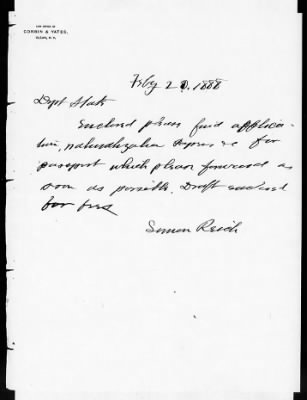 LAW OFFICE OF
CORBIN & YATES,
OLEAN, N.Y.
Feby 20. 1888
Dept State
Enclosed please find applica-
tion, naturalization papers for
passport which please forward as
soon as possible. Draft enclosed
for fees
Simon Reich